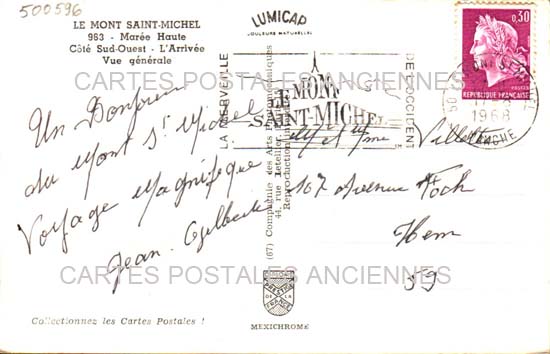 500596
LE MONT SAINT-MICHEL
963 - Marée Haute
Côté Sud-Ouest - L'Arrivée
Vue générale
LUMICAP
COULEURS NATURELLES
LA MERVEILLE
LE MONT
SAINT-MICHEL
DE L'OCCIDENT
0,30
REPUBLIQUE FRANÇAISE
POSTES
1968
MANCHE
Un Bonjour
du Mont St Michel
Voyage Magnifique
Jean-Gilbert
(67) Compagnie des Arts Photomécaniques
44, rue Letellier
Reproduction
Mr et Mme Villette
107 Avenue Foch
Hem
59
CARTES POSTALES ANCIENNES
CARTES POSTALES ANCIENNES
PRESTIGE
DE LA
FRANCE
MEXICHROME
Collectionnez les Cartes Postales !